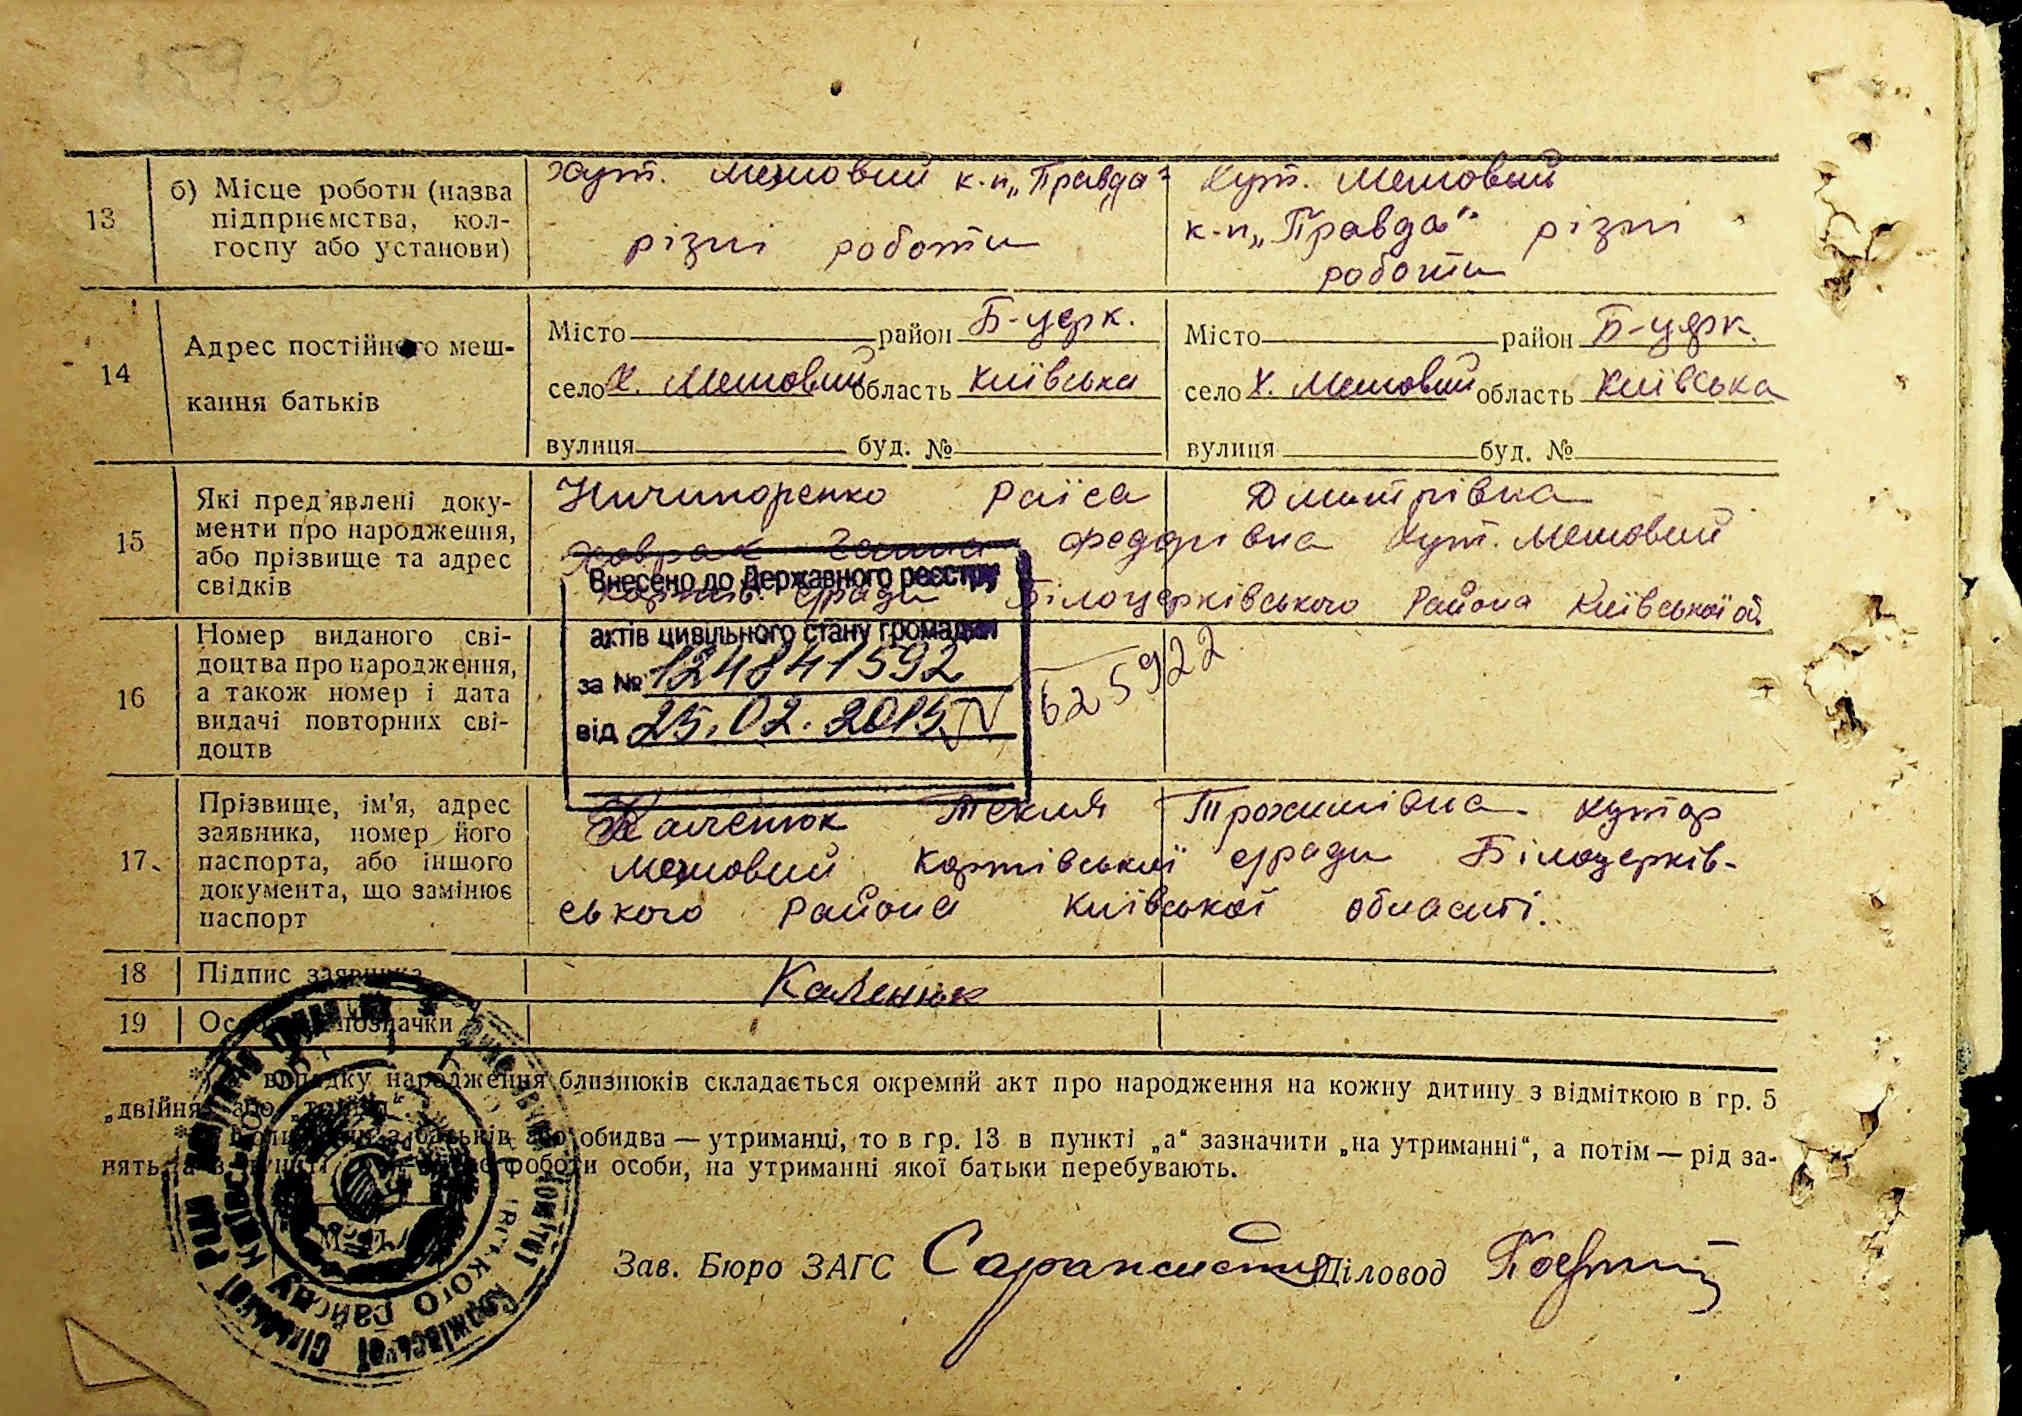 13
б) Місце роботи (назва
підприємства, кол-
госпу або установи)
Хут. Межовий к-п „Правда“
різні роботи
Хут. Межовый
к-п „Правда“ різні
роботи
14
Адрес постійного меш-
кання батьків
Місто район Б-церк.
село Х. Межовий область Київська
вулиця буд. №
Місто район Б-церк.
село Х. Межовий область Київська
вулиця буд. №
15
Які пред'явлені доку-
менти про народження,
або прізвище та адрес
свідків
Ничипоренко Раїса Дмитрівна
Ховрах Ганна Федорівна Хут. Межовий
с/ради Білоцерківського Района Київської об.
16
Номер виданого сві-
доцтва про народження,
а також номер і дата
видачі повторних сві-
доцтв
Внесено до Державного реєстру
актів цивільного стану громадян
за № 124841592
від 25.02.2015
625922
17
Прізвище, ім'я, адрес
заявника, номер його
паспорта, або іншого
документа, що замінює
паспорт
Каленюк Текля Трохимівна Хутор
Межовий Коржівської с/ради Білоцерків-
ського Района Київської області.
18 Підпис заявника
Каленюк
19 позначки
випадку народження близнюків складається окремий акт про народження на кожну дитину з відміткою в гр. 5
„двійня“ або „трійня“.
батьків або обидва — утриманці, то в гр. 13 в пункті „а“ зазначити „на утриманні“, а потім — рід за-
нять, а в пункті роботи особи, на утриманні якої батьки перебувають.
Зав. Бюро ЗАГС
Діловод